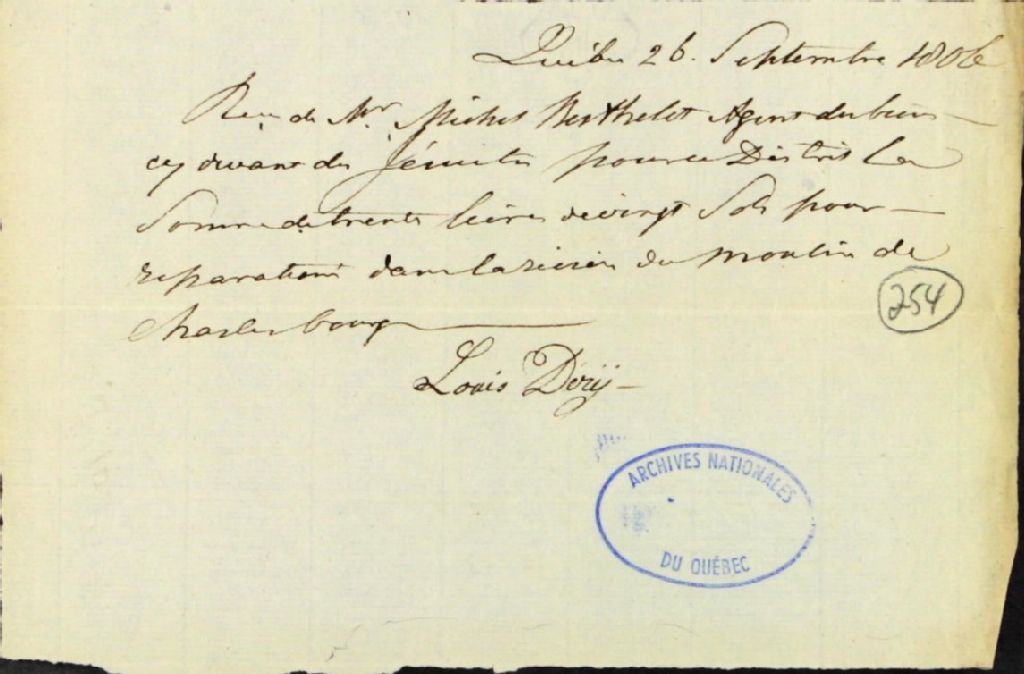 Québec 26. Septembre 1806
Reçu de Mr. Michel Berthelot Agent des biens
cy devant des Jésuites pour ce District La
Somme de trente livres de vingt Sols pour
reparations dans la riviere du moulin de
Charlesbourg
254
Louis Dery
ARCHIVES NATIONALES
DU QUÉBEC